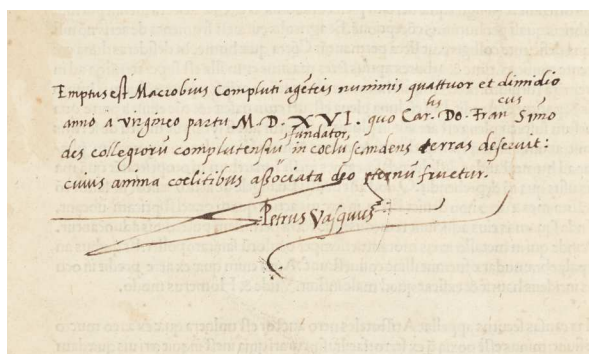 Emptus est Macrobius Compluti argenteis nummis quattuor et dimidio
anno à virgineo partu M.D.XVI. quo Car.lis Do. Fran.cus Ximo
des collegiorũ complutensiũ fundator, in coelũ scandens terras deseruit:
cuius anima coelitibus associata deo eternũ fruetur.
Petrus Vasquus